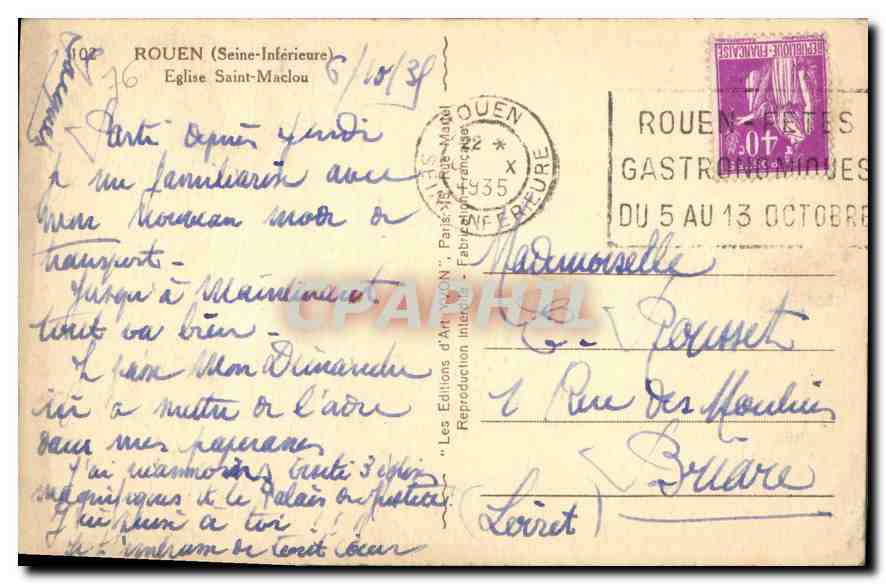 102 ROUEN (Seine-Inférieure)
Eglise Saint-Maclou
76
6/10/35
Jacques
Parti depuis
me familiarise avec
mon nouveau mode de
transport -
Jusqu'à Maintenant
tout va bien -
Je passe Mon Dimanche
ici à mettre de l'ordre
dans mes paperasses
J'ai néanmoins visité 3 églises
magnifiques et le Palais de justice
J'ai pensé à toi !!!
Je t'embrasse de tout coeur
"Les Editions d'Art YVON", Paris, 15, Rue Martel
Reproduction Interdite - Fabrication Française
ROUEN
SEINE INFERIEURE
X
1935
ROUEN FETES
GASTRONOMIQUES
DU 5 AU 13 OCTOBRE
REPUBLIQUE FRANÇAISE
40c
POSTES
Mademoiselle
Rousset
1 Rue des Moulins
Briare
(Loiret)
CPAPHIL